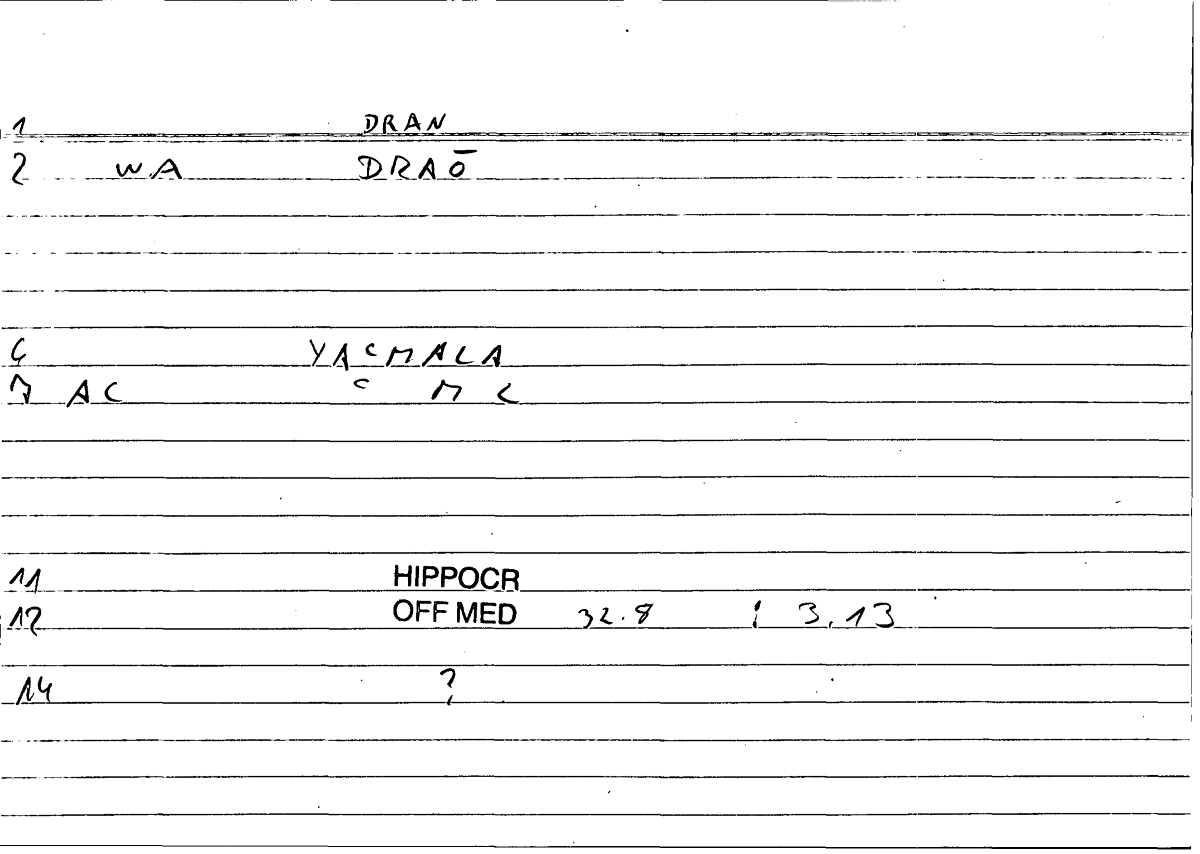 1 DRAN
2 WA DRAŌ
6 YAcMALA
7 AC c M L
11 HIPPOCR
12 OFF MED 32.8 : 3.13
14 ?